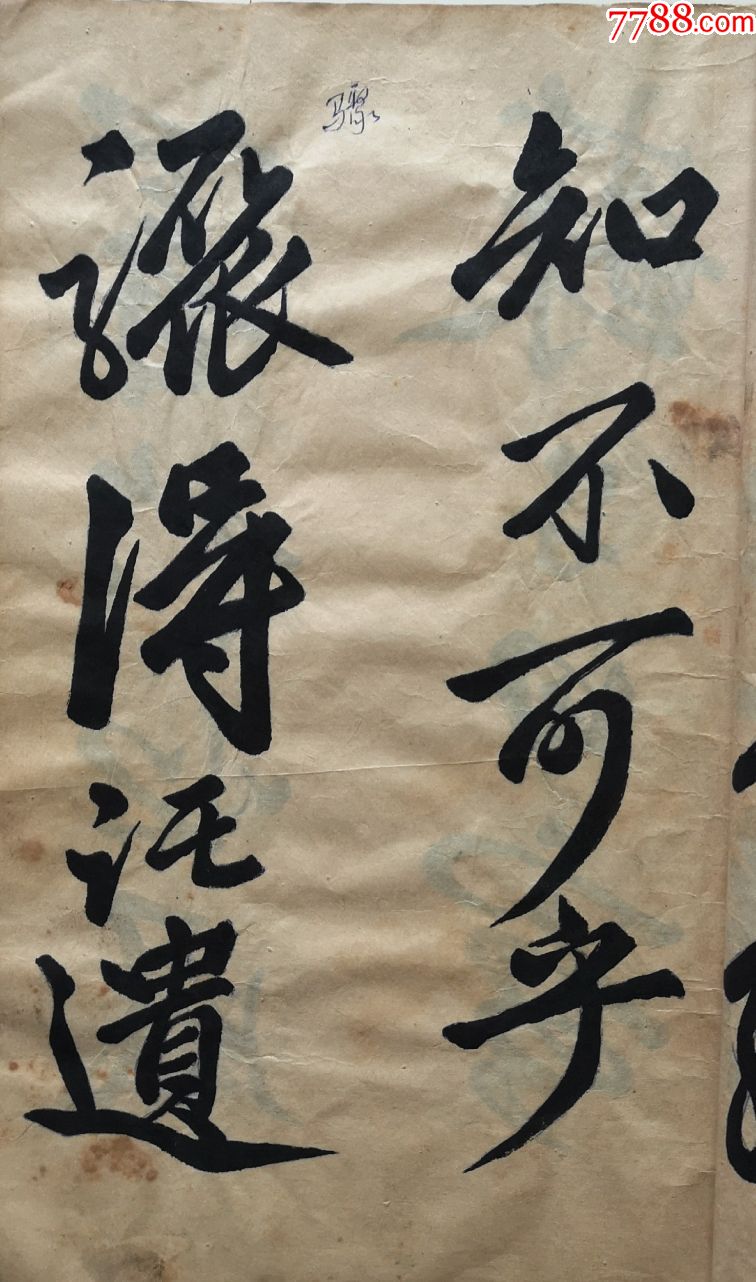 7788.com
知不可乎
骤
驟得託遺